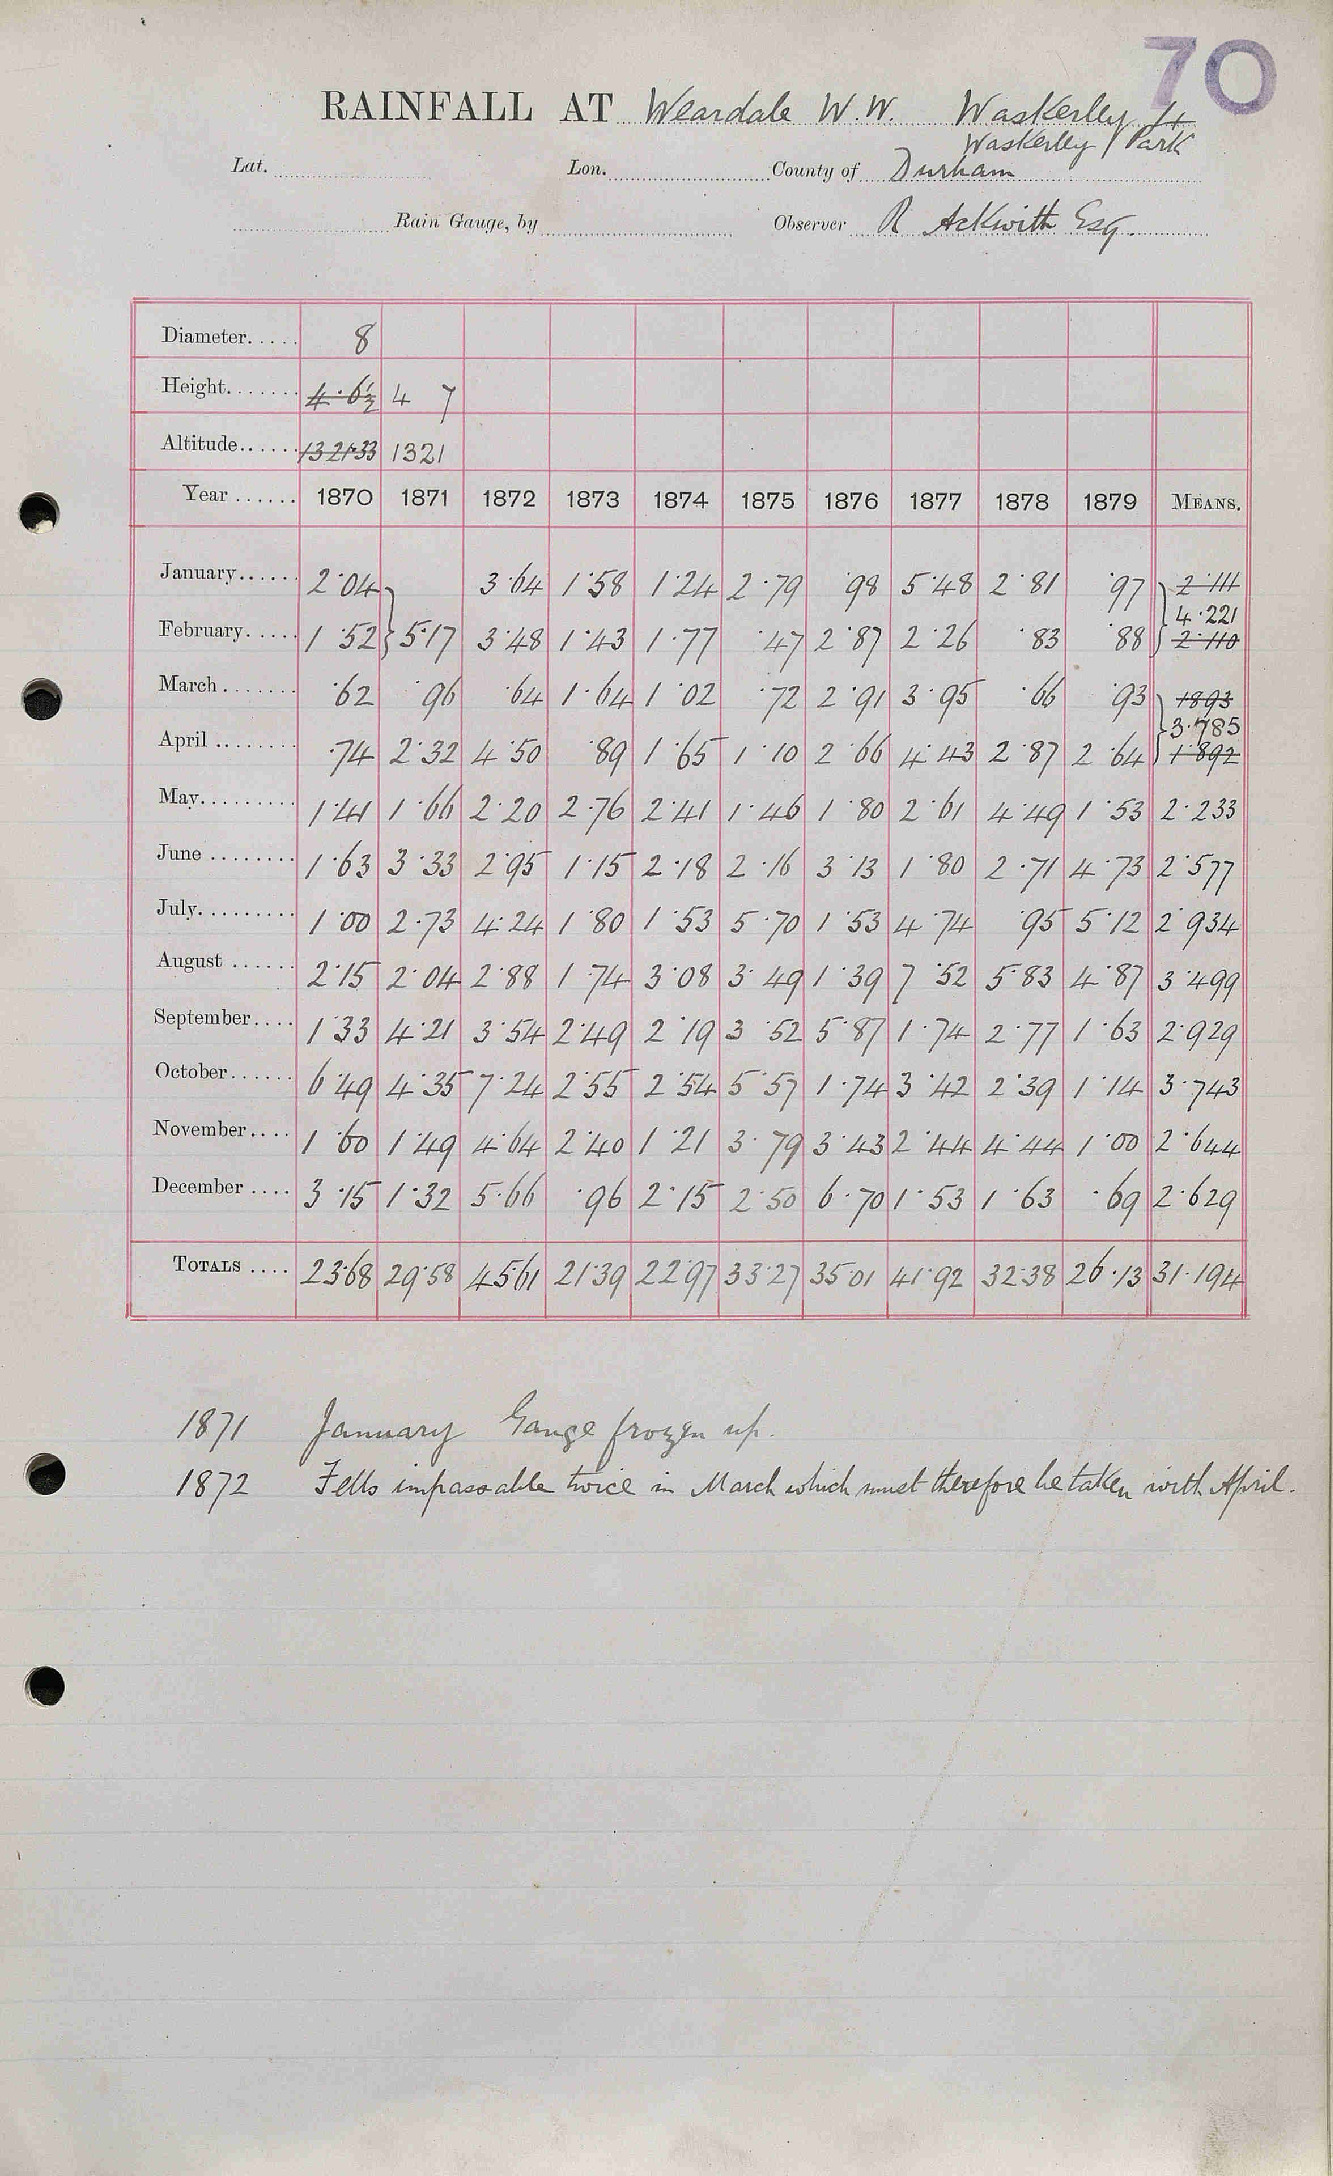 70
RAINFALL AT Weardale W.W. Waskerley H
Waskerley Park
Lat. Lon. County of Durham
Rain Gauge, by Observer R Askwith Esq.
Diameter..... 8
Height....... 4·6½ 4 7
Altitude...... 1321·33 1321
Year ...... 1870 1871 1872 1873 1874 1875 1876 1877 1878 1879 MEANS.
January...... 2·04 3·64 1·58 1·24 2·79 ·98 5·48 2·81 ·97 2·111
4·221
February..... 1·52 5·17 3·48 1·43 1·77 ·47 2·87 2·26 ·83 ·88 2·110
March ....... ·62 ·96 ·64 1·64 1·02 ·72 2·91 3·95 ·66 ·93 1893
3·785
April ........ ·74 2·32 4·50 ·89 1·65 1·10 2·66 4·43 2·87 2·64 1·892
May......... 1·41 1·66 2·20 2·76 2·41 1·46 1·80 2·61 4·49 1·53 2·233
June ........ 1·63 3·33 2·95 1·15 2·18 2·16 3·13 1·80 2·71 4·73 2·577
July......... 1·00 2·73 4·24 1·80 1·53 5·70 1·53 4·74 ·95 5·12 2·934
August ...... 2·15 2·04 2·88 1·74 3·08 3·49 1·39 7·52 5·83 4·87 3·499
September.... 1·33 4·21 3·54 2·49 2·19 3·52 5·87 1·74 2·77 1·63 2·929
October...... 6·49 4·35 7·24 2·55 2·54 5·57 1·74 3·42 2·39 1·14 3·743
November.... 1·60 1·49 4·64 2·40 1·21 3·79 3·43 2·44 4·44 1·00 2·644
December .... 3·15 1·32 5·66 ·96 2·15 2·50 6·70 1·53 1·63 ·69 2·629
TOTALS .... 23·68 29·58 45·61 21·39 22·97 33·27 35·01 41·92 32·38 26·13 31·194
1871 January Gauge frozen up.
1872 Fells impassable twice in March which must therefore be taken with April.